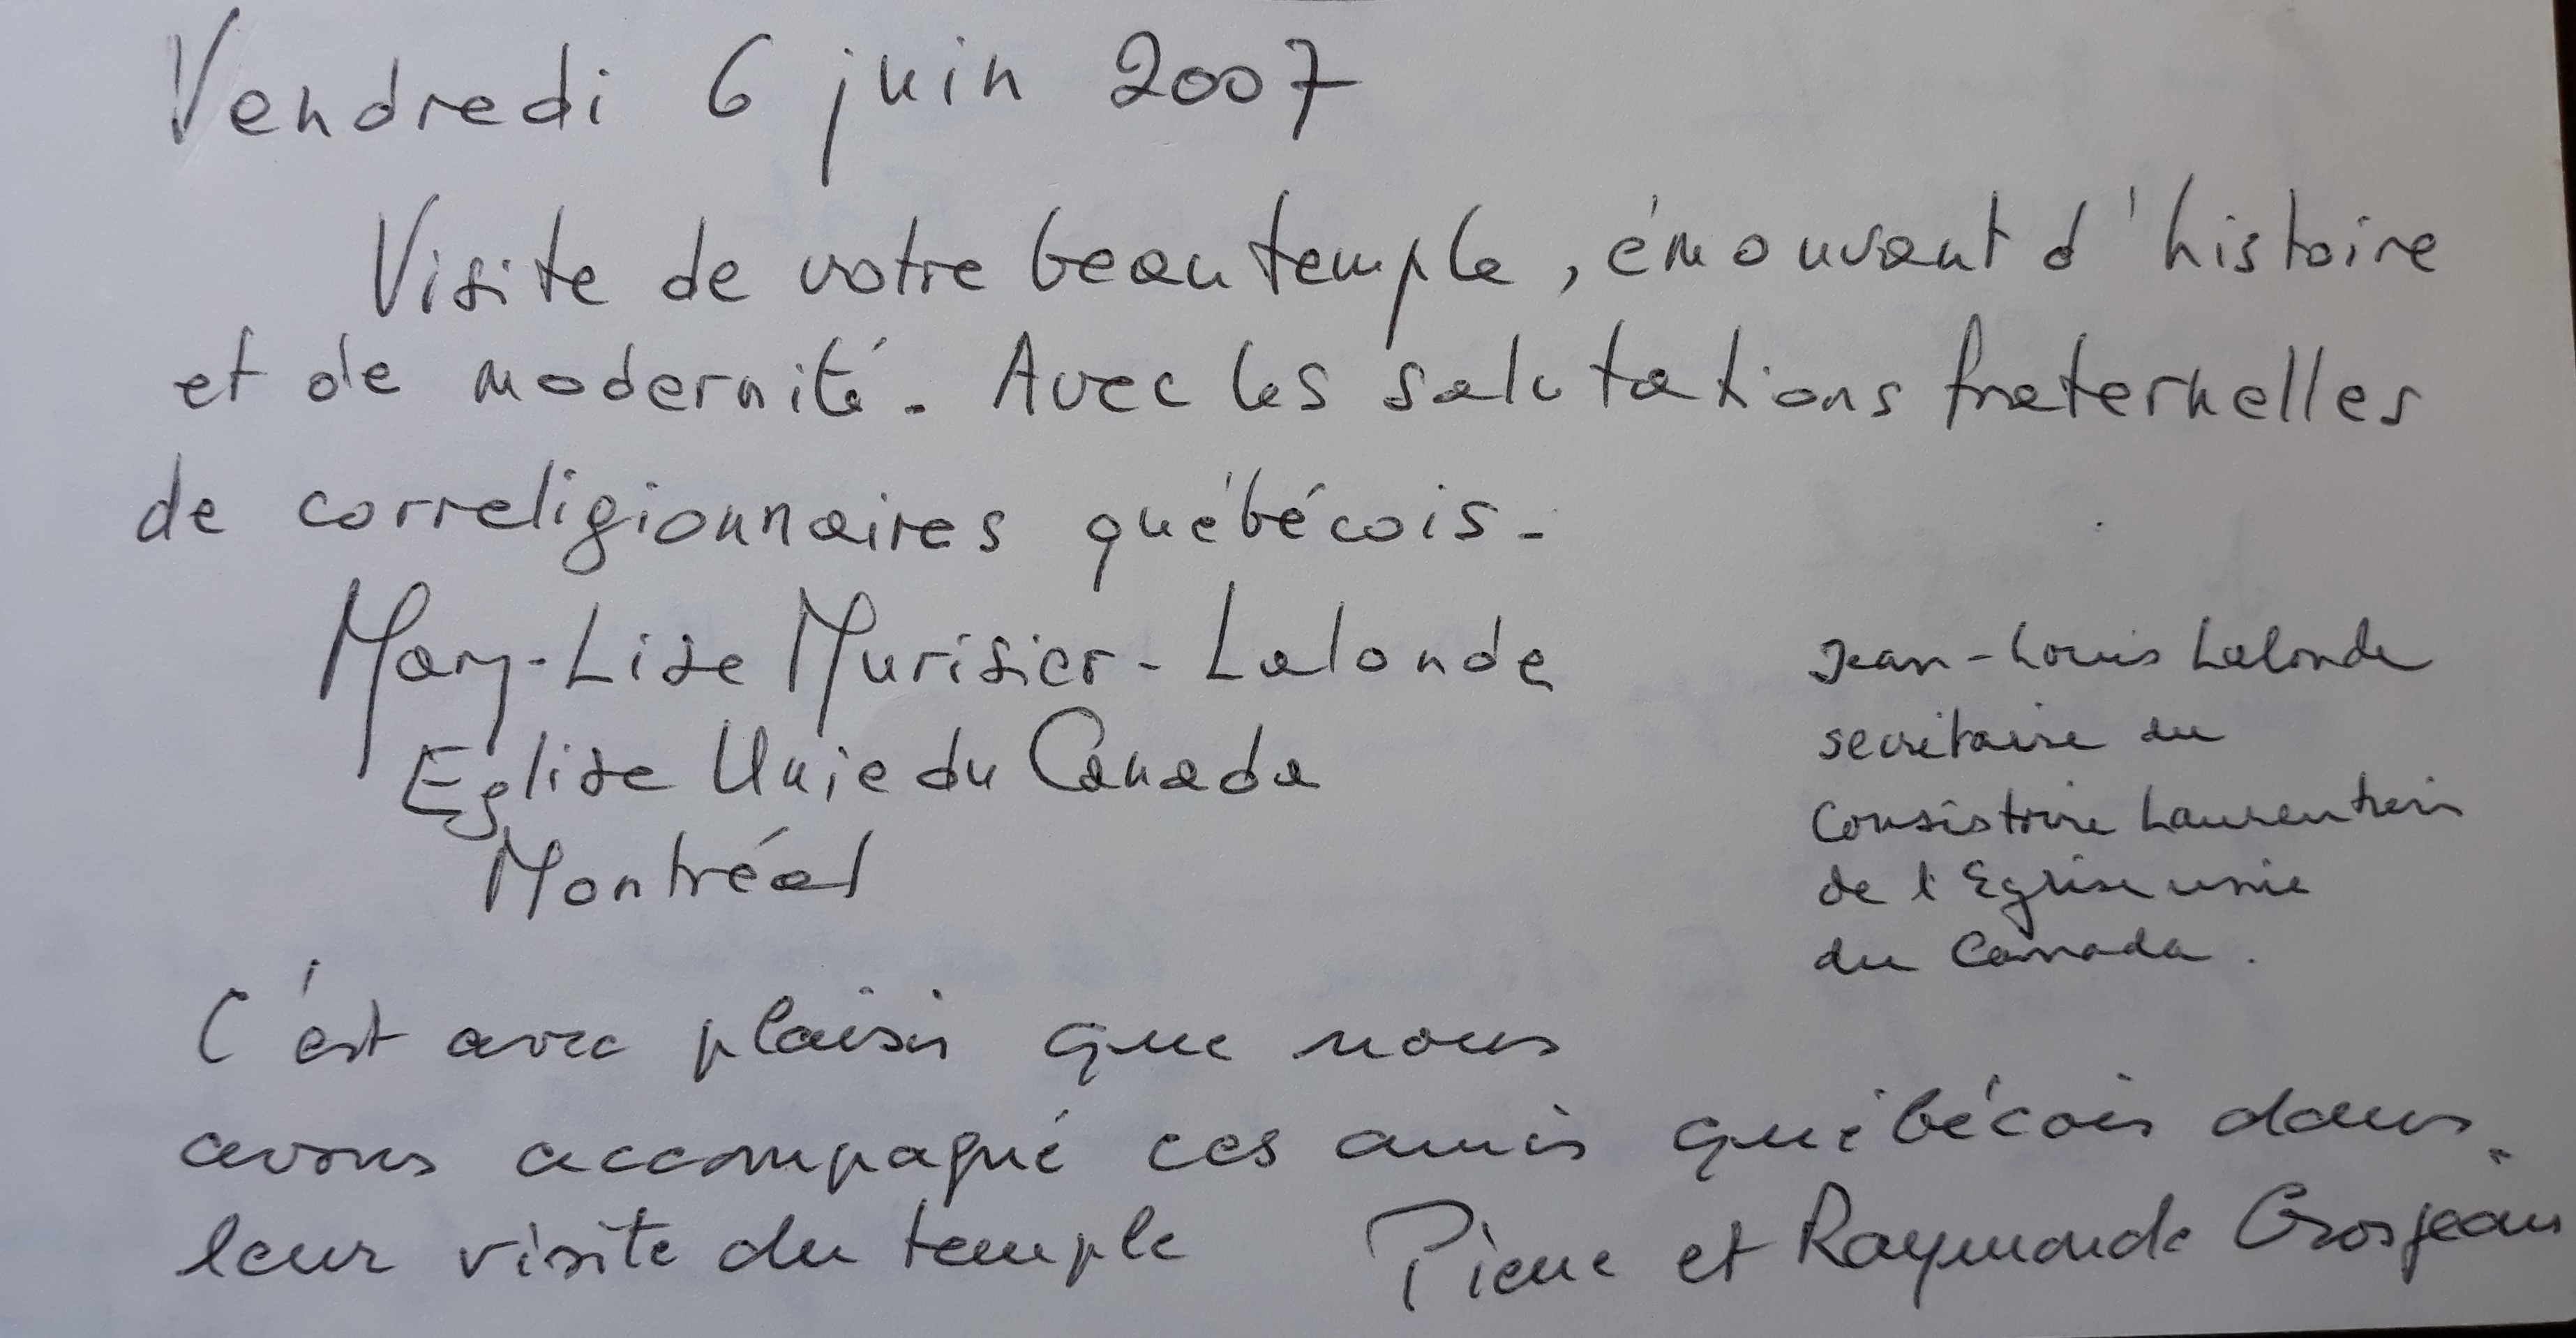 Vendredi 6 juin 2007
Visite de votre beau temple, émouvant d'histoire
et de modernité. Avec les salutations fraternelles
de correligionnaires québécois -
Mary-Lise Murisier-Lalonde
Eglise Unie du Canada
Montréal
Jean-Louis Lalonde
secrétaire du
Consistoire Laurentien
de l'Eglise unie
du Canada.
C'est avec plaisir que nous
avons accompagné ces amis québécois dans
leur visite du temple Pierre et Raymonde Grosjean